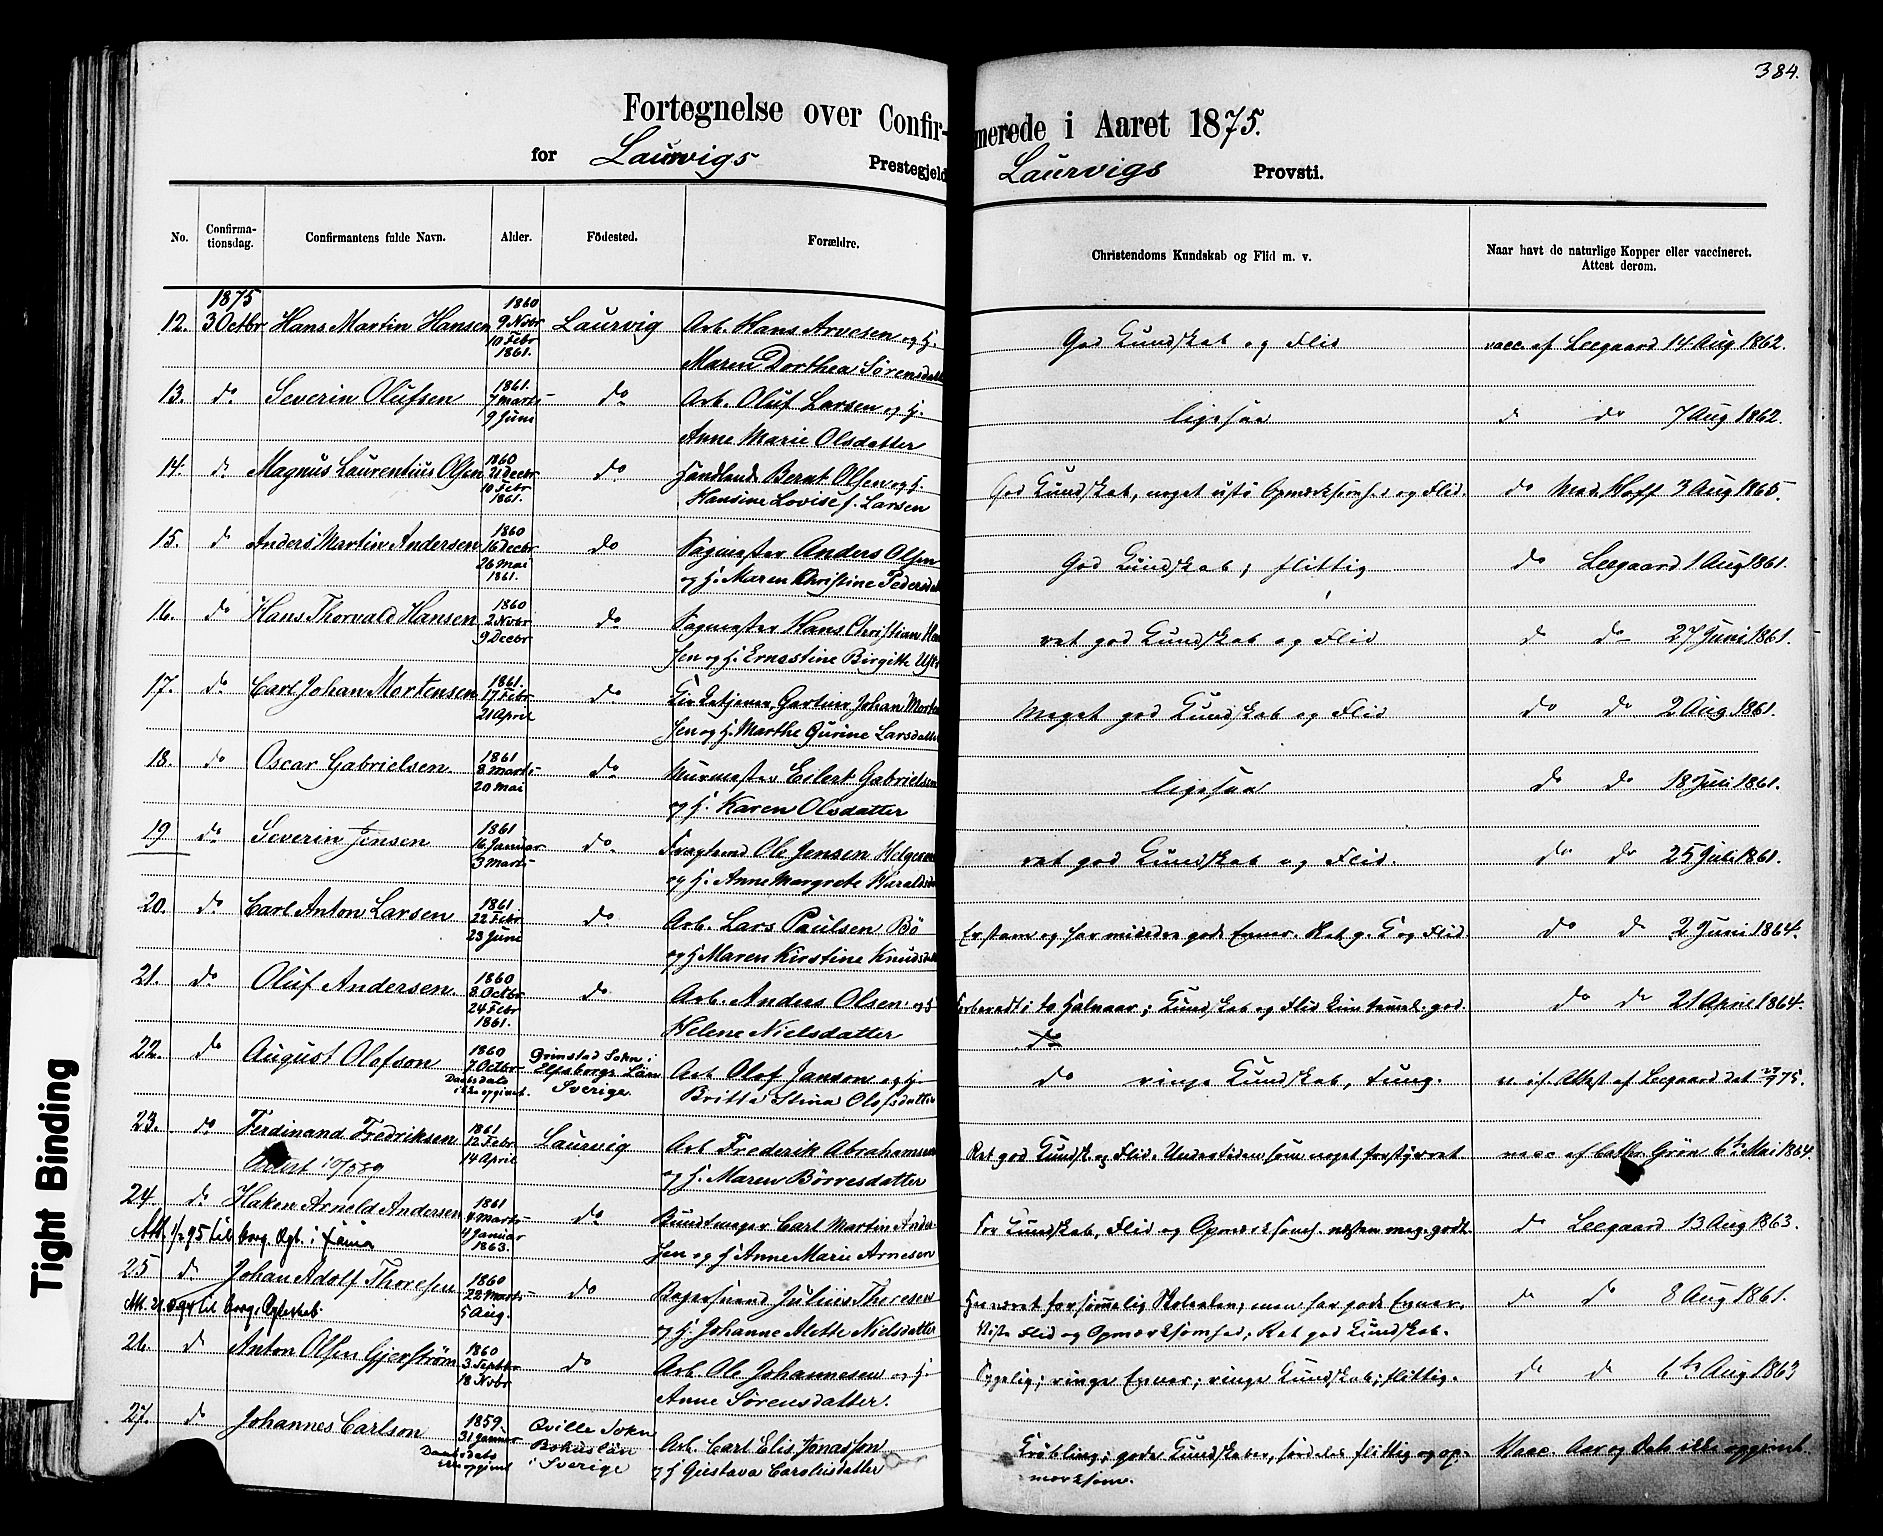 384.
Fortegnelse over Confir-
merede i Aaret 1875.
for Laurvigs Prestegjeld
Laurvigs Provsti.
No. Confirma-tionsdag. Confirmantens fulde Navn. Alder. Fødested. Forældre.
Christendoms Kundskab og Flid m. v. Naar havt de naturlige Kopper eller vaccineret. Attest derom.
1875 1860
12. 3 Octbr Hans Martin Hansen 9 Novbr Laurvig Arb. Hans Arvesen og H. God Kundskab og Flid vacc. af Leegaard 14 Aug 1862.
10 Febr 1861. Maren Dorthea Sørensdatt
13. do Severin Olufsen 1861. 7 Marts 9 Juni do Arb. Oluf Larsen og H. ligesaa do do 7 Aug 1862.
Anne Marie Olsdatter
14. do Magnus Laurentius Olsen 1860 21 Decbr 10 Febr 1861. do Handlende Bernt Olsen og H. God Kundskab, noget ustø Opmærksomhed og Flid. do Mad. Hoff 3 Aug 1865.
Hansine Lovise f. Larsen
15. do Anders Martin Andersen 1860 16 Decbr 26 Mai 1861. do Anders Olsen God Kundskab, flittig do Leegaard 1 Aug 1861.
og H. Maren Christine Pedersdat
16. do Hans Thorvald Hansen 1860 2 Novbr 9 Decbr do Hans Christian Han ret god Kundskab og Flid do do 27 Juni 1861.
sen og H. Ernestine Birgitte
17. do Carl Johan Mortensen 1861. 17 Febr 21 April do Johan Morten Meget god Kundskab og Flid do do 2 Aug 1861.
sen og H. Marthe Gurine Larsdatter
18. do Oscar Gabrielsen 1861 8 Marts 20 Mai do Murmester Eilert Gabrielsen ligesaa do do 18 Juli 1861.
og H. Karen Olsdatter
19 do Severin Jensen 1861 16 Januar 3 Marts do Ole Jensen Helgesen ret god Kundskab og Flid. do do 25 Juli 1861.
og H. Anne Margrete
20. do Carl Anton Larsen 1861 22 Febr 23 Juni do Arb. Lars Paulsen Bö Er stam og har mindre gode Evner. Ret g. K og Flid. do do 2 Juni 1864.
og H Maren Kirstine Knudsdatt
21. do Oluf Andersen 1860 8 Octbr 24 Febr 1861. do Arb. Anders Olsen og H Forberedt i to Halvaar; Kundskab og Flid god. do do 21 April 1864.
Helene Nielsdatter do
22. do August Olofson 1860 7 Octbr Daabsdato ikke opgivet. Grinstad Sokn i Elfsborgs Län Sverige Arb Olof Janson og H. do ringe Kundskab, tung. Attest af Leegaard
Britta Stina Olofsdatter
23. do Ferdinand Fredriksen 1861 12 Febr 14 April Laurvig Arb Frederik Abrahamsen Ret god Kundsk og Flid. Undertiden noget forstyrret vacc af Cathr. Grön 6te Mai 1864.
og H. Maren Börresdatter
24. do Haken Arnold Andersen 1861 4 Marts 4 Januar 1863. do Bundtmager Carl Martin Ander For Kundskab, Flid og Opmærksomh. næsten meg. godt. do Leegaard 13 Aug 1863.
sen og H Anne Marie Arnesen
25 do Johan Adolf Thoresen 1860 22 Marts 5 Aug. do Bagersvend Julius Thoresen Har været forsømmelig Skolealen, men har gode Evner. do do 8 Aug 1861.
til borg. Ægteskab og H. Johanne Alette Nielsdatter Flid og Opmærksomhed; Ret god Kundskab.
26. do Anton Olsen Gjerström 1860 3 Septbr 18 Novbr do Arb. Ole Johannesen og H. Sygelig; ringe Evner; ringe Kundskab; flittig. do do 6te Aug 1863
Anne Sörensdatter.
27. do Johannes Carlson 1859. 31 Januar Daabsdato ikke opgivet Qville Sokn Bohuslän i Sverige Arb. Carl Elis Jonasson Kröbling; gode Kundskaber, særdeles flittig og op- Vacc. Aar og Dato ikke opgivet.
og H Gustava Carolusdatter mærksom.
Tight Binding